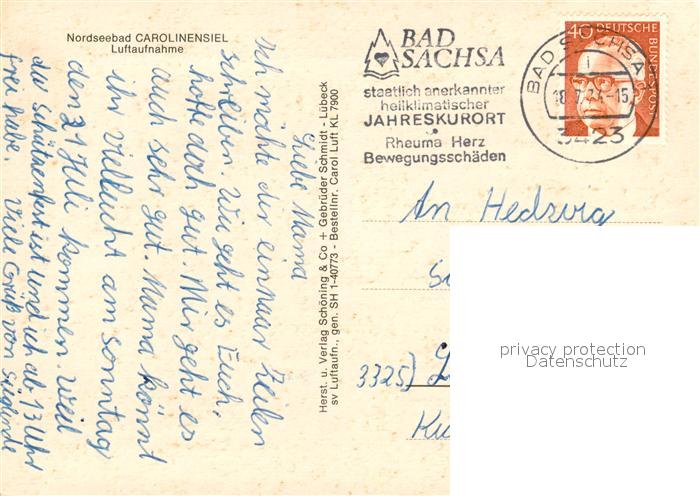 Nordseebad CAROLINENSIEL
Luftaufnahme
Liebe Mama
Ich möchte dir ein paar Zeilen
schreiben. Wie geht es Euch,
hoffe doch gut. Mir geht es
auch sehr gut. Mama könnt
ihr vielleicht am Sonntag
den 21 Juli kommen. weil
da Schützenfest ist und ich ab 13 Uhr
frei habe. Viele Grüß von Sieglinde
Herst. u. Verlag Schöning & Co + Gebrüder Schmidt - Lübeck
sv Luftaufn., gen. SH 1-40773 - Bestellnr. Carol Luft KL 7900
BAD
SACHSA
staatlich anerkannter
heilklimatischer
JAHRESKURORT
Rheuma Herz
Bewegungsschäden
BAD SACHSA
3423
40
DEUTSCHE BUNDESPOST
An Hedwig
3325)
privacy protection
Datenschutz